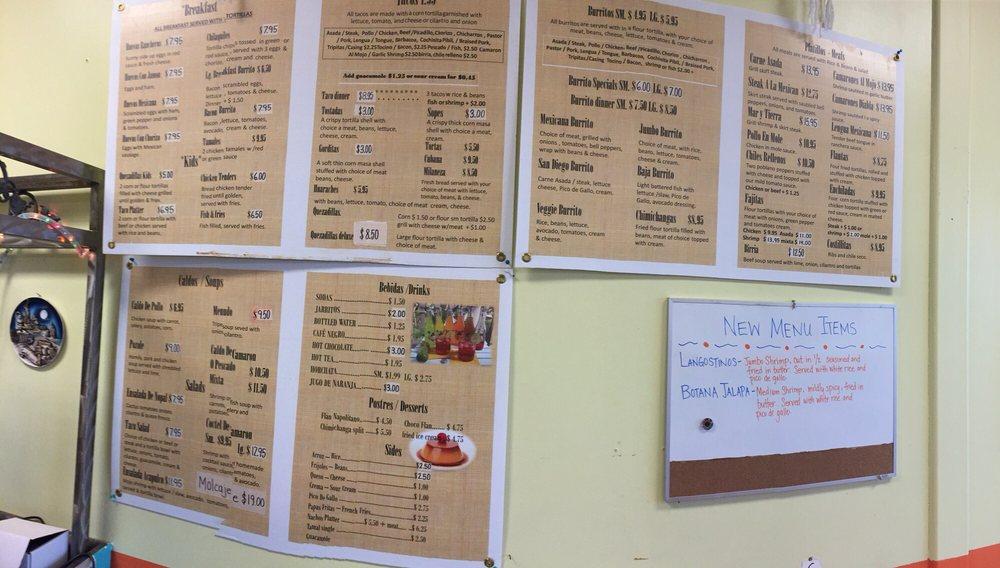 "Breakfast
ALL BREAKFAST SERVED WITH TORTILLAS
Huevos Rancheros $7.95
Sunny side up eggs in red
sauce & fresh cheese.
Huevos Con Jamon $7.95
Eggs and ham.
Huevos Mexicana $7.95
Scrambled eggs with
green pepper and onions
& tomatoes.
Huevos Con Chorizo $7.95
Eggs with Mexican
sausage.
Chilaquiles $7.95
Tortilla chips tossed in green or
red sauce, served with 3 eggs &
cheese.
Lg. Breakfast Burrito $6.50
Bacon scrambled eggs,
lettuce, tomatoes & cheese.
Dinner + $1.50
Bueno Burrito $7.95
Bacon, lettuce, tomatoes,
avocado, cream & cheese.
Tamales $9.95
2 chicken tamales w/red
or green sauce
"Kids"
Quesadillas Kids $5.00
2 corn or flour tortillas
filled with cheese grilled
until golden & frips.
Taco Platter $6.95
2 corn or flour tortillas with
beef or chicken served
with rice and beans.
Chicken Tenders $6.00
Bread chicken tender
fried until golden,
served with fries.
Fish & Fries $6.50
Fish filled, served with fries.
Tacos 1.99
All tacos are made with a corn tortilla garnished with
lettuce, tomato, and cheese or cilantro and onion
Asada / Steak, Pollo / Chicken, Beef /Picadillo, Chorizo, Chicharron, Pastor
/ Pork, Lengua / Tongue, Barbacoa, Cochinita Pibill, / Braised Pork,
Tripitas/Casing $2.25Tocino / Bacon, $2.25 Pescado / Fish, $2.50 Camaron
Al Mojo / Garlic Shrimp $2.50birria, chile relleno $2.50
Add guacamole $1.25 or sour cream for $0.45
Taco dinner $8.95
3 tacos w rice & beans
fish or shrimp + $2.00
Tostadas $3.00
A crispy tortilla shell with
choice a meat, beans, lettuce,
cheese, cream.
Sopes $3.00
A crispy thick corn masa
shell with choice a meat,
cream.
Gorditas $3.00
A soft thin corn masa shell
stuffed with choice of meat
beans, cheese.
Tortas $5.50
Cubana $9.50
Milaneza $8.50
Fresh bread served with your
choice of meat with lettuce,
tomato, beans, & cheese.
Huaraches $5.95
with beans, lettuce, tomato, choice of meat cream, cheese.
Quezadillas
Corn $ 1.50 or flour sm tortilla $2.50
grill with cheese w/meat + $1.00
Quezadillas deluxe $8.50
Large flour tortilla with cheese &
choice of meat.
Burritos SM. $ 4.95 LG. $ 5.95
All burritos are served with in a flour tortilla, with your choice of
meat, beans, cheese, lettuce, tomatoes & cream.
Asada / Steak, Pollo / Chicken, Beef /Picadillo, Chorizo, Chicharron,
Pastor / Pork, Lengua / Tongue, Barbacoa, Cochinita Pibill, / Braised Pork,
Tripitas/Casing Tocino / Bacon, shrimp or fish $2.00 +
Burrito Specials SM. $6.00 LG. $ 7.00
Burrito dinner SM. $ 7.50 LG. $ 8.50
Mexicana Burrito
Choice of meat, grilled with
onions, tomatoes, bell peppers,
wrap with beans & cheese.
San Diego Burrito
Carne Asada / steak, lettuce
cheese, Pico de Gallo, cream.
Veggie Burrito
Rice, beans, lettuce,
avocado, tomatoes, cream
& cheese.
Jumbo Burrito
Choice of meat, with rice,
beans, lettuce, tomatoes,
cheese & cream.
Baja Burrito
Light battered fish with
lettuce /Misc. Pico de
Gallo, avocado dressing.
Chimichangas $8.95
Fried flour tortilla filled with
cheese, lettuce, avocado,
beans, meat of choice topped
with cream.
Platillos - Meals
All meats are served with Rice & Beans & salad
Carne Asada $13.95
Grill skirt steak.
Steak A La Mexican $ 12.75
Skirt steak served with sautéed bell
peppers, onions, tomatoes.
Mar y Tierra $ 15.95
Grill shrimp & skirt steak.
Pollo En Mole $ 10.95
Chicken in mole sauce.
Chiles Rellenos $ 10.50
Two poblano peppers stuffed
with cheese and topped with
our mild tomato sauce.
Chicken or beef + $ 1.25
Fajitas
Flour tortillas with your choice of
meat with onions, green pepper
and tomatoes.
Chicken $ 9.95 Asada $ 11.00
Shrimp $ 13.95 mixta $ 14.00
Birria $12.50
Beef soup served with lime, onion, cilantro and tortillas
Camarones Al Mojo $ 13.95
Shrimp sautéed in garlic butter
Camarones Diabla $ 13.95
Shrimp sautéed in hot sauce.
Lengua Mexicana $11.50
Tender beef tongue in
ranchera sauce.
Flautas $ 8.75
Four fried tortillas, rolled and
stuffed with chicken cheese and
cream.
Enchiladas $ 9.95
Four corn tortillas stuffed with
chicken topped with green or
red sauce, cream in melted
cheese.
Steak + $ 1.00 or
shrimp + $ 2.00 mole + $ 1.00
Costillitas $ 8.95
Ribs and chile seco.
Caldos / Soups
Caldo De Pollo $ 6.95
Chicken soup with carrot,
celery, potatoes, corn.
Menudo $9.50
Tripe soup served with
onion, cilantro.
Pozole $9.00
Hominy, pork and chicken
soup served with shredded
lettuce and lime.
Caldo De Camaron
O Pescado $ 10.50
Mixta $ 11.50
Shrimp or fish soup with
carrots, celery and
potatoes.
Salads
Ensalada De Nopal $7.95
Cactus tomatoes onions
cilantro & queso fresco.
Taco Salad $7.95
Choice of chicken or beef
or steak and a tortilla bowl
with lettuce, onions, tomato,
cilantro, guacamole, cream &
beans.
Coctel De Camaron
Sm. $9.95 Lg. $12.95
Shrimp with homemade
cocktail sauce, tomatoes,
onions, cilantro
& avocado.
Ensalada Acapulco $11.95
Mojo shrimp with lettuce / slaw, avocado, tomatoes,
served a tortilla bowl.
Molcajete $19.00
Bebidas /Drinks
SODAS $ 1.50
JARRITOS $2.00
BOTTLED WATER $ 1.25
CAFÉ NEGRO $ 1.95
HOT CHOCOLATE $3.00
HOT TEA $ 1.95
HORCHATA SM. $1.99 LG. $ 2.75
JUGO DE NARANJA $3.00
Postres / Desserts
Flan Napolitano $ 4.50
Choco Flan $ 4.75
Chimichanga split $ 5.50
fried ice cream $ 4.75
Sides
Arroz – Rice $2.50
Frijoles – Beans $2.50
Queso – Cheese $ 1.00
Crema – Sour Cream $ 1.00
Pico De Gallo $ 1.00
Papas Fritas – French Fries $ 2.75
Nachos Platter $ 5.50 + meat $ 2.25
Tamal single $ 6.25
Guacamole $ 2.50
NEW MENU ITEMS
LANGOSTINOS - Jumbo Shrimp, cut in 1/2 seasoned and
fried in butter. Served with white rice, and
pico de gallo.
BOTANA JALAPA - Medium Shrimp, mildly spice, fried in
butter. Served with white rice and
pico de gallo.